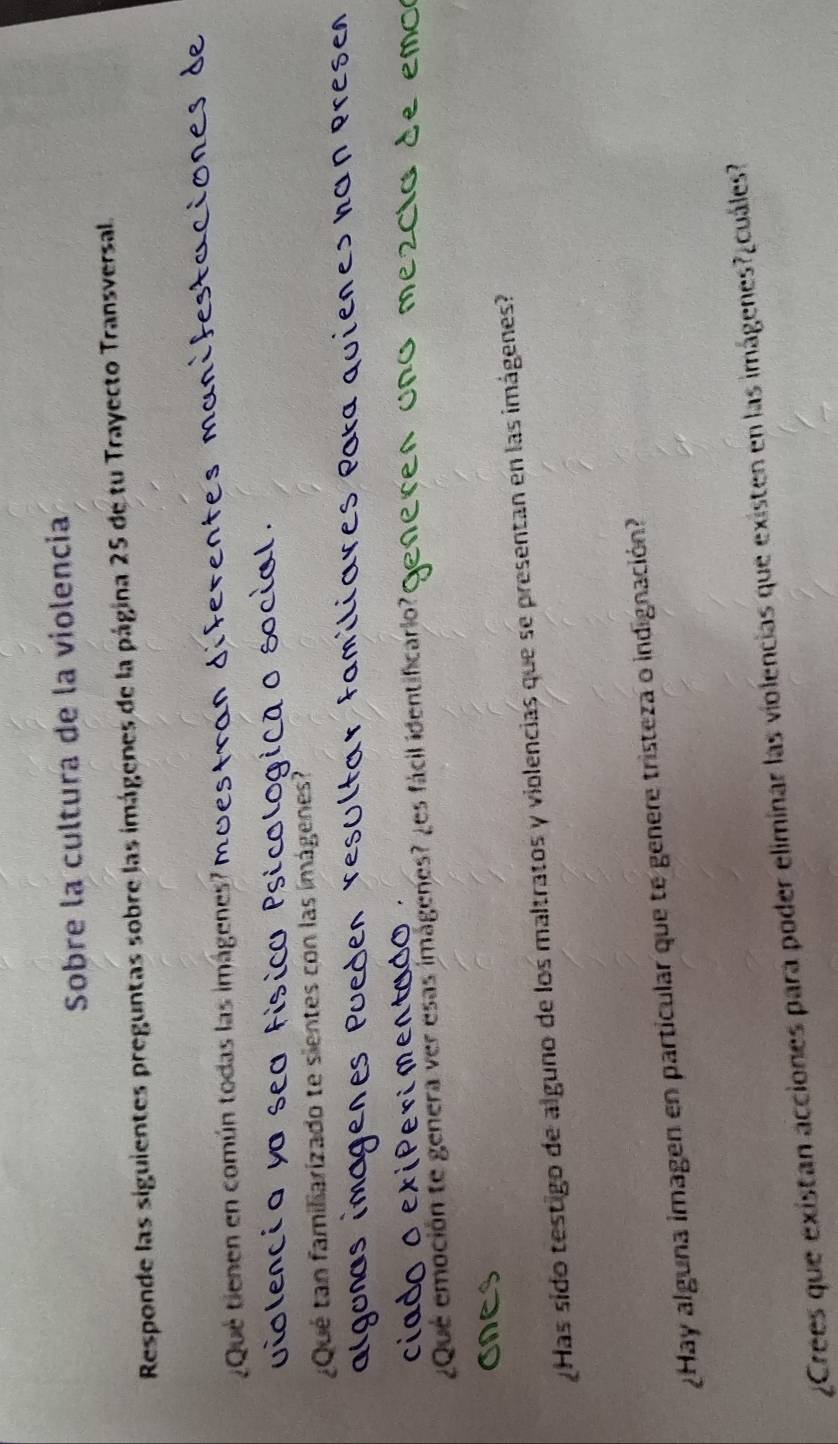 Sobre la cultura de la violencia
Responde las siguientes preguntas sobre las imágenes de la página 25 de tu Trayecto Transversal.
¿Qué tienen en común todas las imágenes? muestran diferentes manifestaciones de
violencia ya sea fisica Psicologica o social.
¿Qué tan familiarizado te sientes con las imágenes?
algunas imagenes Pueden resultar familiares Para quienes han presen
ciado o exiPerimentado.
¿Qué emoción te genera ver esas imágenes? ¿es fácil identificarlo? generen una mezcla de emo
ones
¿Has sido testigo de alguno de los maltratos y violencias que se presentan en las imágenes?
¿Hay alguna imagen en particular que te genere tristeza o indignación?
¿Crees que existan acciones para poder eliminar las violencias que existen en las imágenes?¿cuáles?